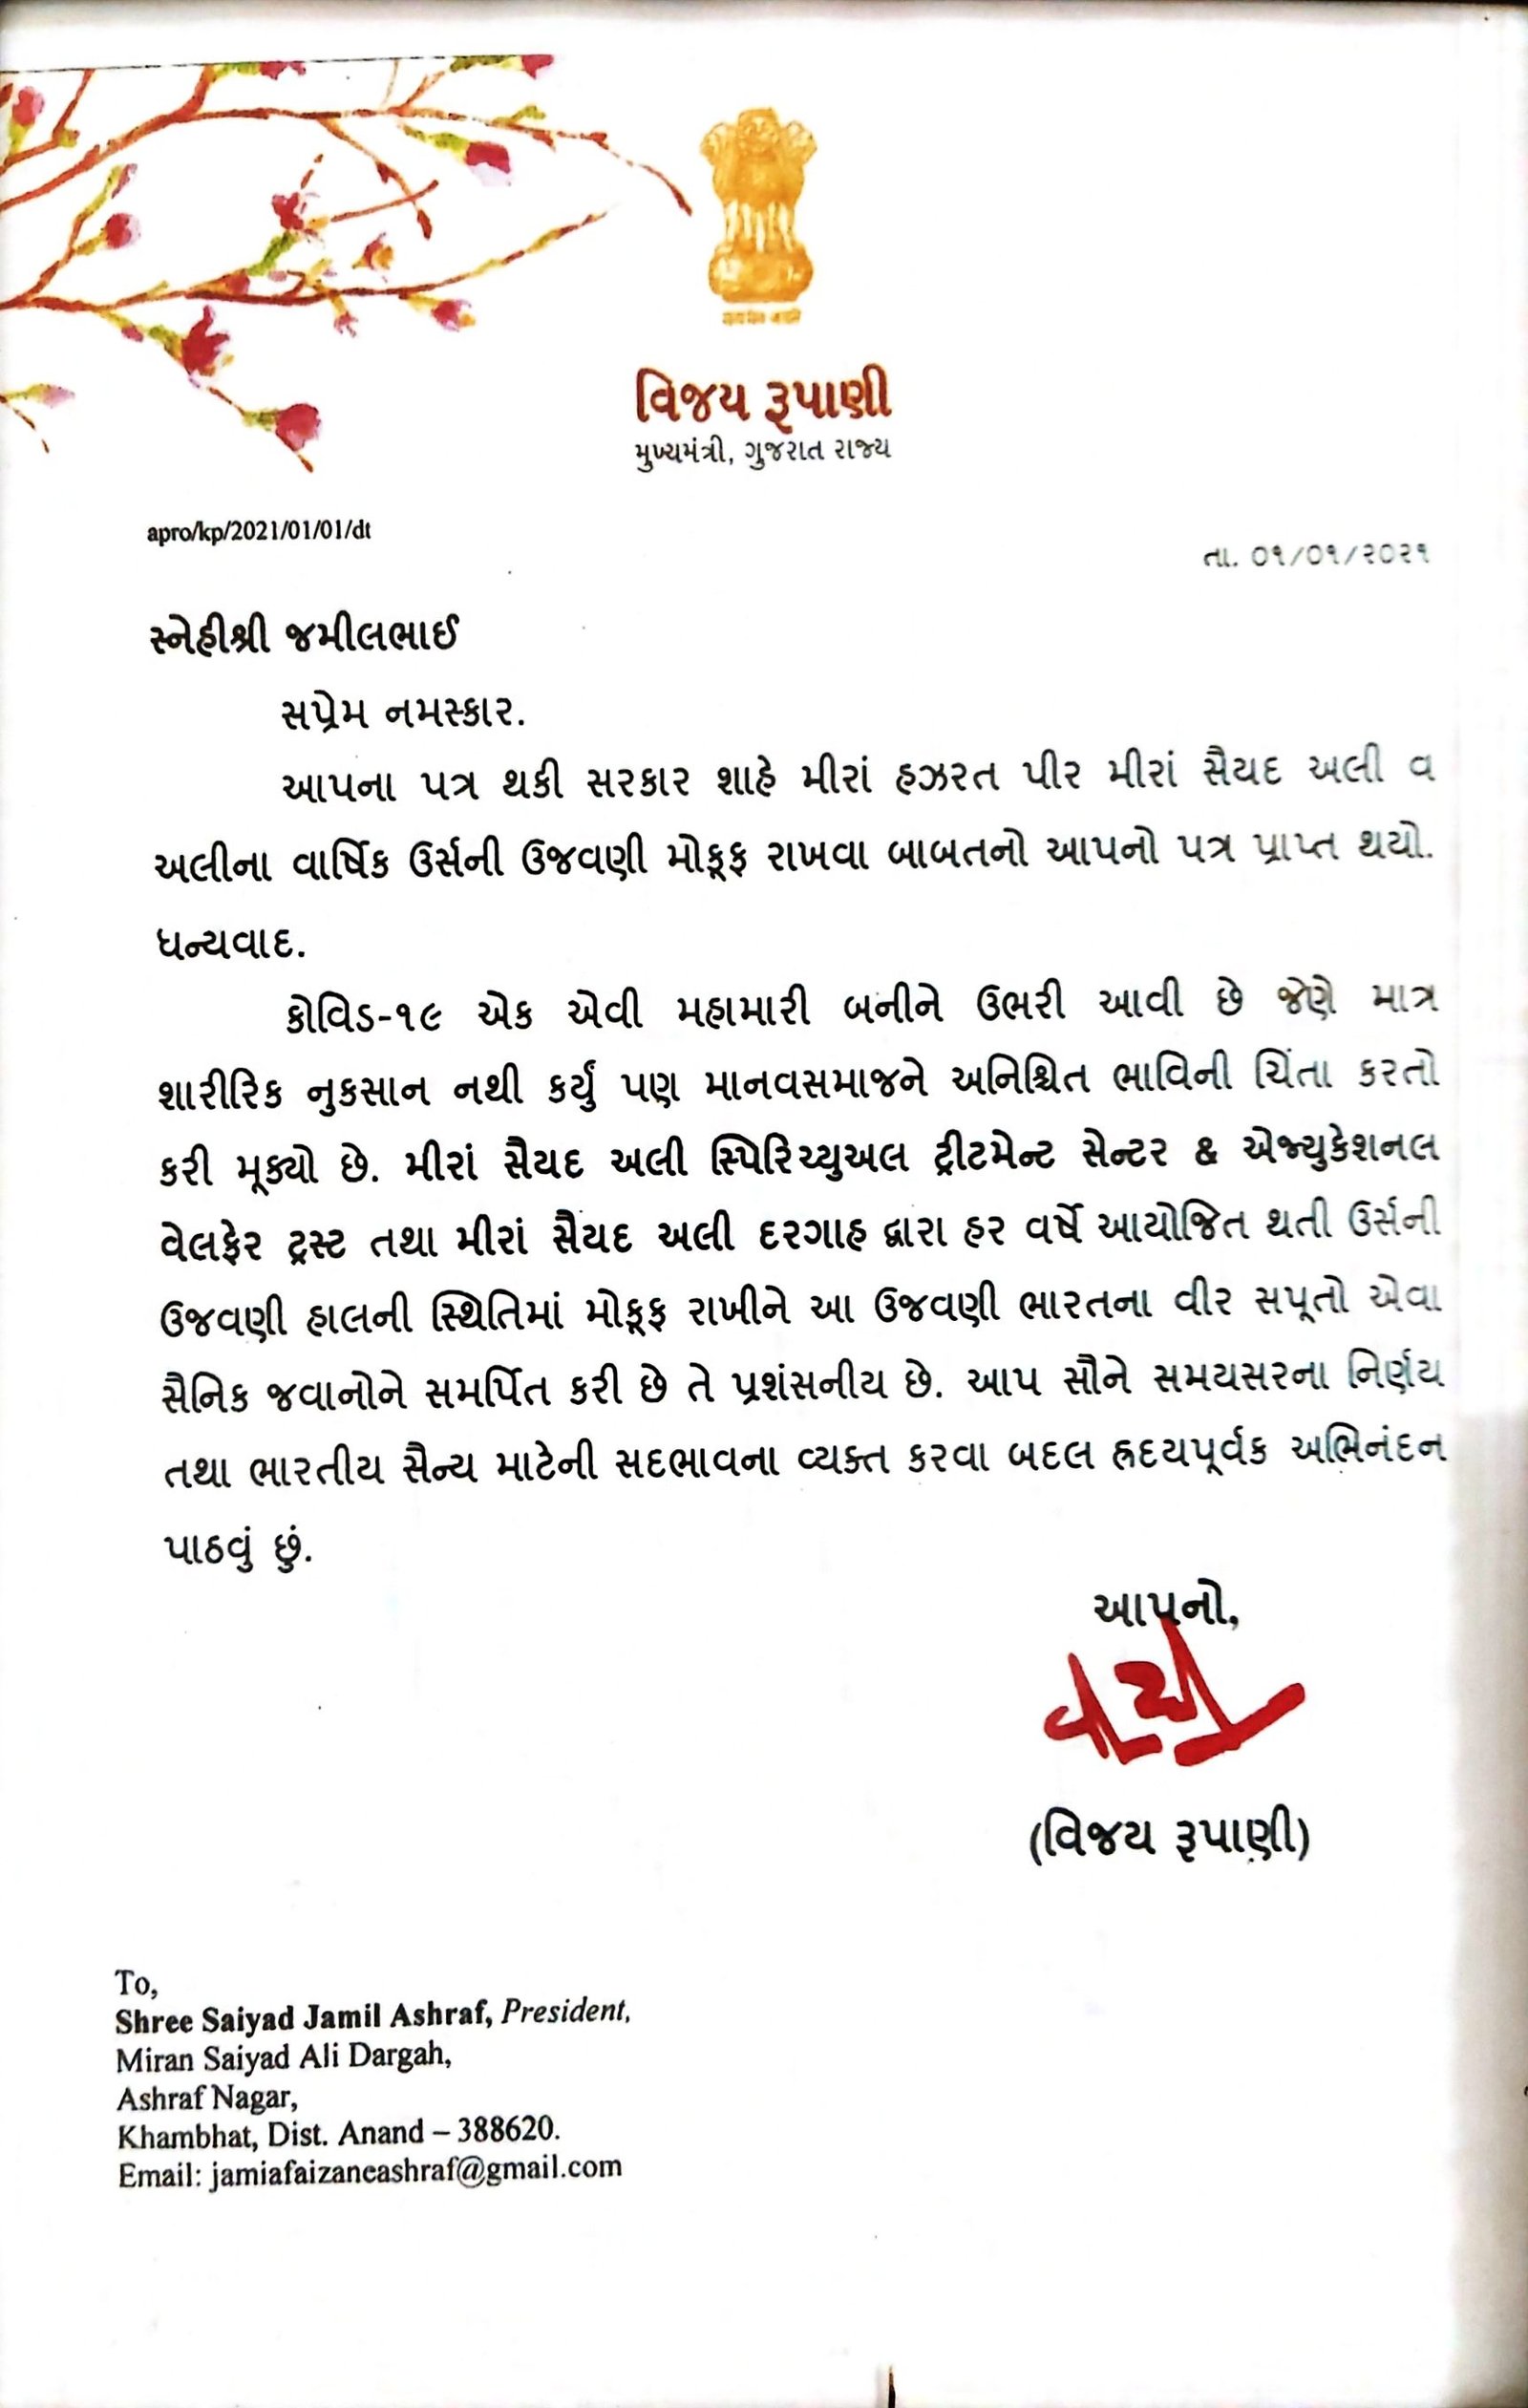 વિજય રૂપાણી
મુખ્યમંત્રી, ગુજરાત રાજ્ય
apro/kp/2021/01/01/dt
તા. ૦૧/૦૧/૨૦૨૧
સ્નેહીશ્રી જમીલભાઈ
સપ્રેમ નમસ્કાર.
આપના પત્ર થકી સરકાર શાહે મીરાં હઝરત પીર મીરાં સૈયદ અલી વ
અલીના વાર્ષિક ઉર્સની ઉજવણી મોકૂફ રાખવા બાબતનો આપનો પત્ર પ્રાપ્ત થયો.
ધન્યવાદ.
કોવિડ-૧૯ એક એવી મહામારી બનીને ઉભરી આવી છે જેણે માત્ર
શારીરિક નુકસાન નથી કર્યું પણ માનવસમાજને અનિશ્ચિત ભાવિની ચિંતા કરતો
કરી મૂક્યો છે. મીરાં સૈયદ અલી સ્પિરિચ્યુઅલ ટ્રીટમેન્ટ સેન્ટર & એજ્યુકેશનલ
વેલફેર ટ્રસ્ટ તથા મીરાં સૈયદ અલી દરગાહ દ્વારા હર વર્ષે આયોજિત થતી ઉર્સની
ઉજવણી હાલની સ્થિતિમાં મોકૂફ રાખીને આ ઉજવણી ભારતના વીર સપૂતો એવા
સૈનિક જવાનોને સમર્પિત કરી છે તે પ્રશંસનીય છે. આપ સૌને સમયસરના નિર્ણય
તથા ભારતીય સૈન્ય માટેની સદભાવના વ્યક્ત કરવા બદલ હ્રદયપૂર્વક અભિનંદન
પાઠવું છું.
આપનો,
(વિજય રૂપાણી)
To,
Shree Saiyad Jamil Ashraf, President,
Miran Saiyad Ali Dargah,
Ashraf Nagar,
Khambhat, Dist. Anand – 388620.
Email: jamiafaizaneashraf@gmail.com